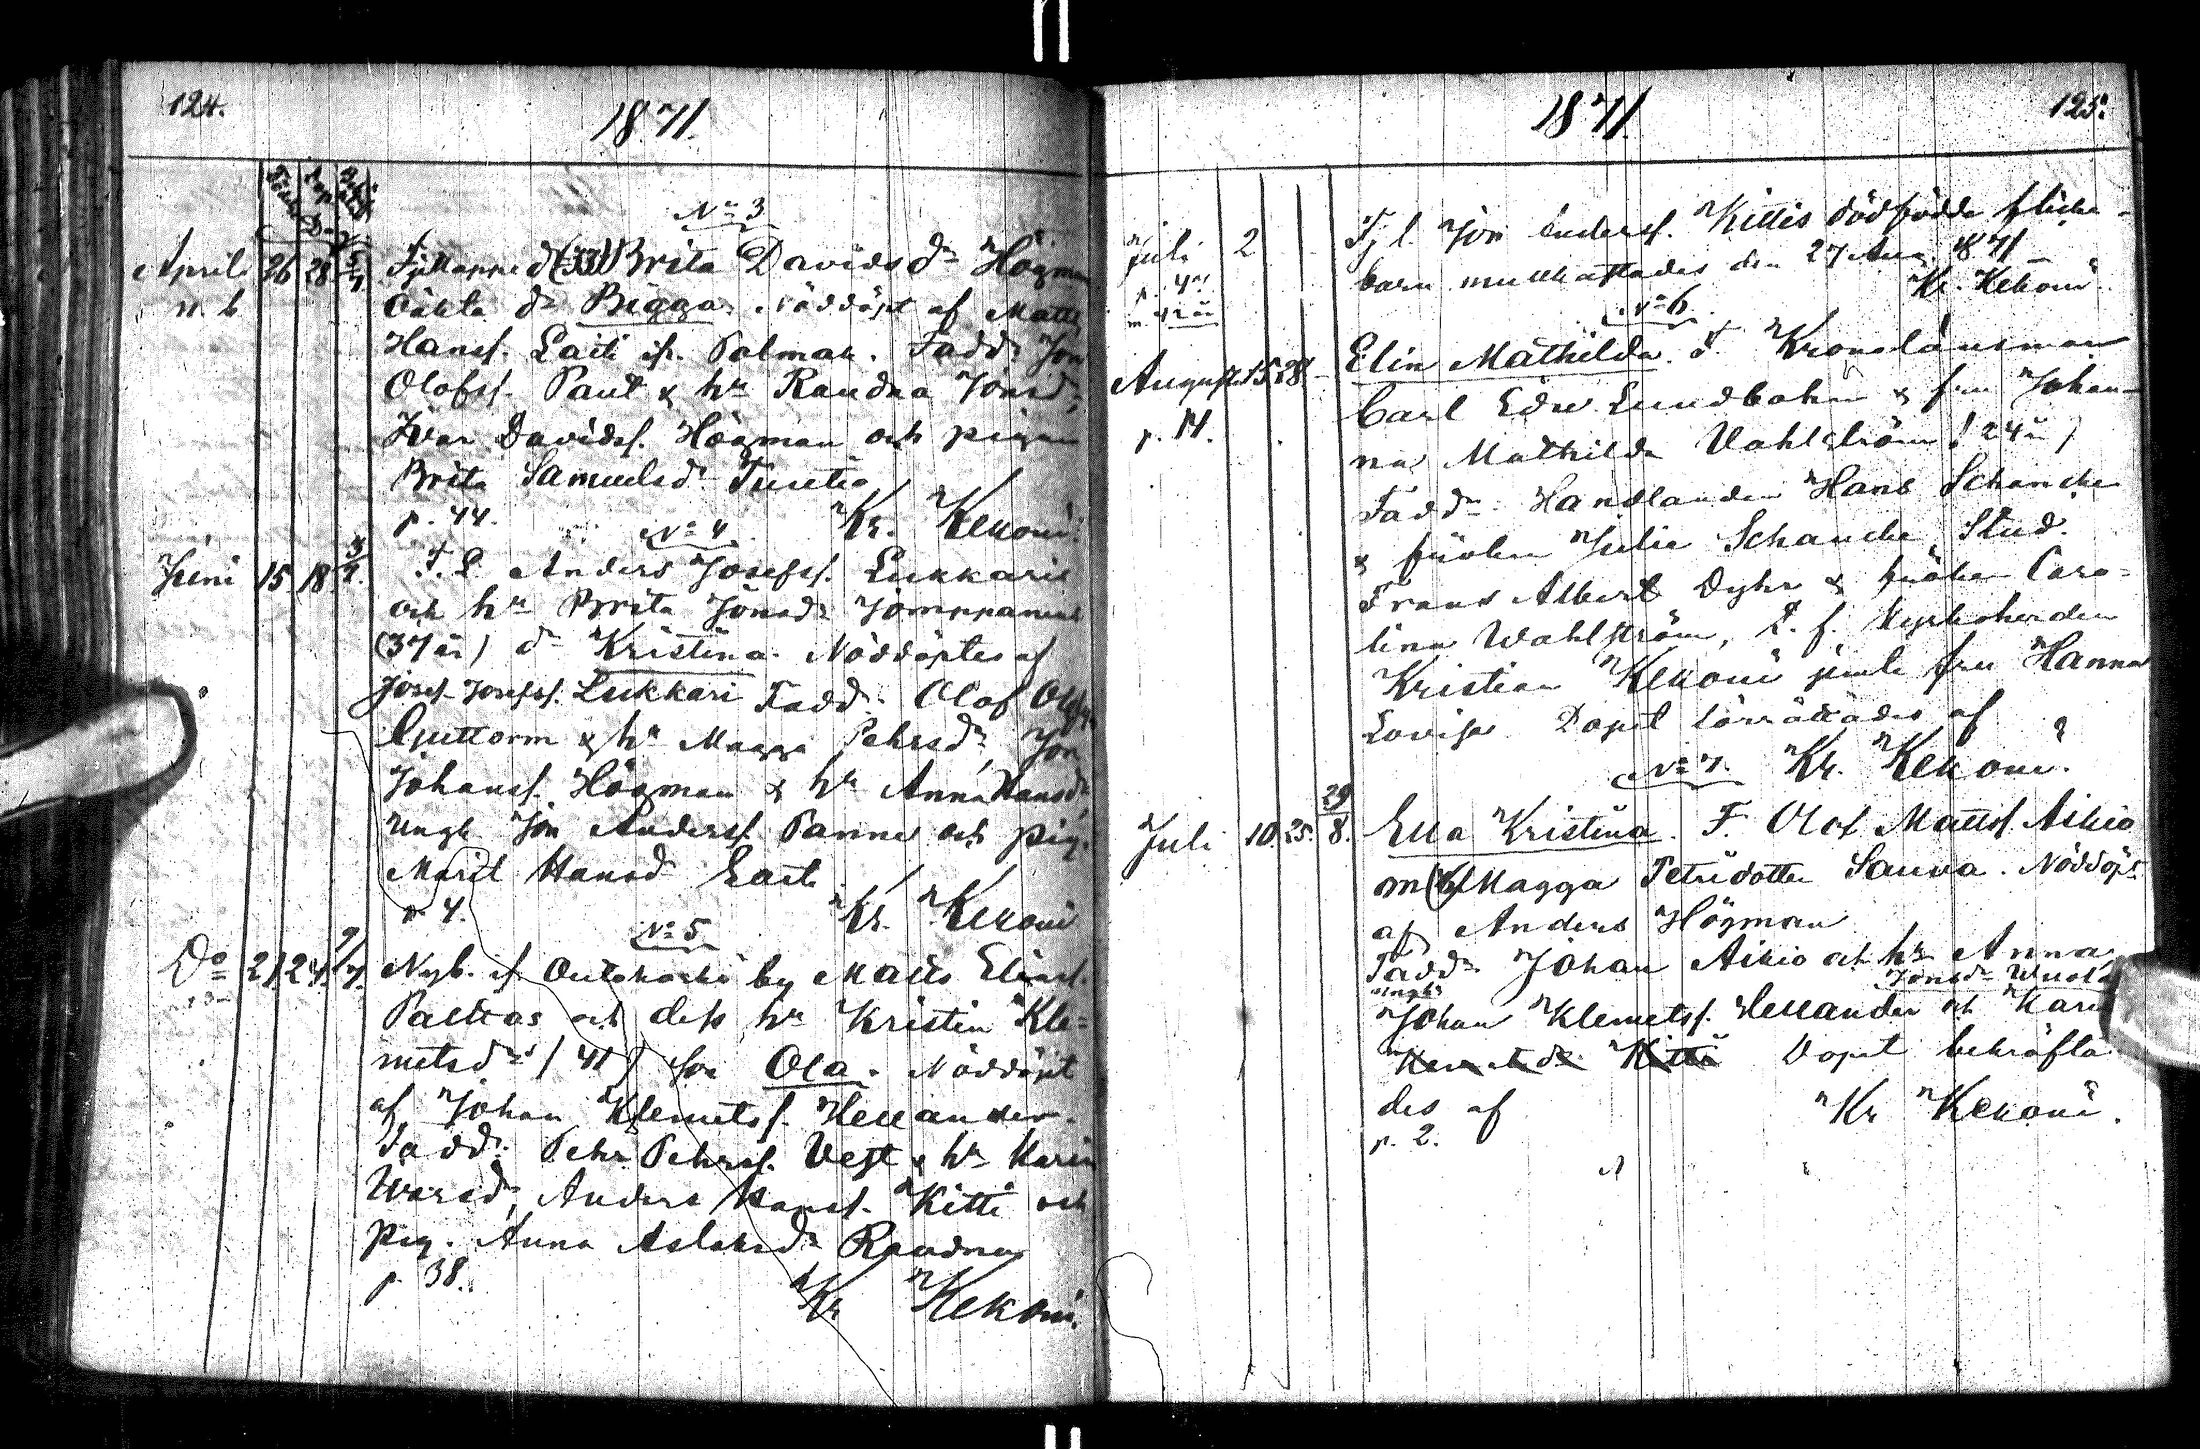 124.
1871.
Födelse Dop Bekräft.
Dag
No 3
April 26 28 5/7 Fjellappe d (33) Brita Davids dr Högman
n. b oäkta dr Bigga. Nöddöpt af Matts
Hanss. Laiti ifr. Polmak. Fadd: Jon
Olofss. Paut & hu Raudna Jonsdr
Ivar Davidss. Högman och pigan
Brita Samuelsdr
p. 44. Kr. Kekoni.
No 4
Juni 15 18 F. L. Anders Josefss. Lukkari
och hu Brita Jonsdr Jomppanens
(37 år) dr Kristina. Nöddöptes af
Josef Josefss. Lukkari Fadd: Olof Olofss.
Guttorm & hu Magga Pehrsdr, Jon
Johanss. Högman & hu Anna Hansdr
Ungk. Jon Anderss. Panne och pig.
Marit Hansd Laiti.
p 4. Kr. Kekoni
No 5
Do 21 24 9/7. Nyb. fr. Outakoski by Matts Eliass.
Palttas och dess hu Kristin Kle-
metsdrs (41) son Ola. Nöddöpt
af Johan Klemetss. Hellander.
Fadd: Pehr Pehrss. Vest & hu Karin
Iwarsdr, Anders Hanss. Kitti och
pig. Anna Aslaksdr Raudna
p 38. Kr Kekoni.
1871.
125.
Juli 2 Fj l. Jon Anderss. Kittis dödfödda flicke-
p. 4 barn mullkastades den 27 Aug. 1871
m. 42 år Kr. Kekoni
No 6.
August 15 28 Elin Mathilda. F. Kronolänsman
p. 14. Carl Edw Lundbohm & fru Johan-
na Mathilda Wahlström (24 år)
Fadd: Handlanden Hans Schanche
& fröken Julie Schanche, Stud.
Frans Albert Dyhr & fröken Caro-
lina Wahlström, Kyrkoherden
Kristian Kekoni jemte fru Hanna
Lovisa. Dopet förrättades af
Kr. Kekoni.
No 7.
Juli 10 25. 29/8. Ella Kristina. F. Olof Mattss. Aikio
m Magga Petridotter Sauva. Nöddöpt
af Anders Högman
Fadd: Johan Aikio och hu Anna
Jonsdr
ungk:
Johan Klemetss. Hellander och Karin
Klemetsdr Kitti Dopet bekräfta-
des af Kr Kekoni.
p. 2.